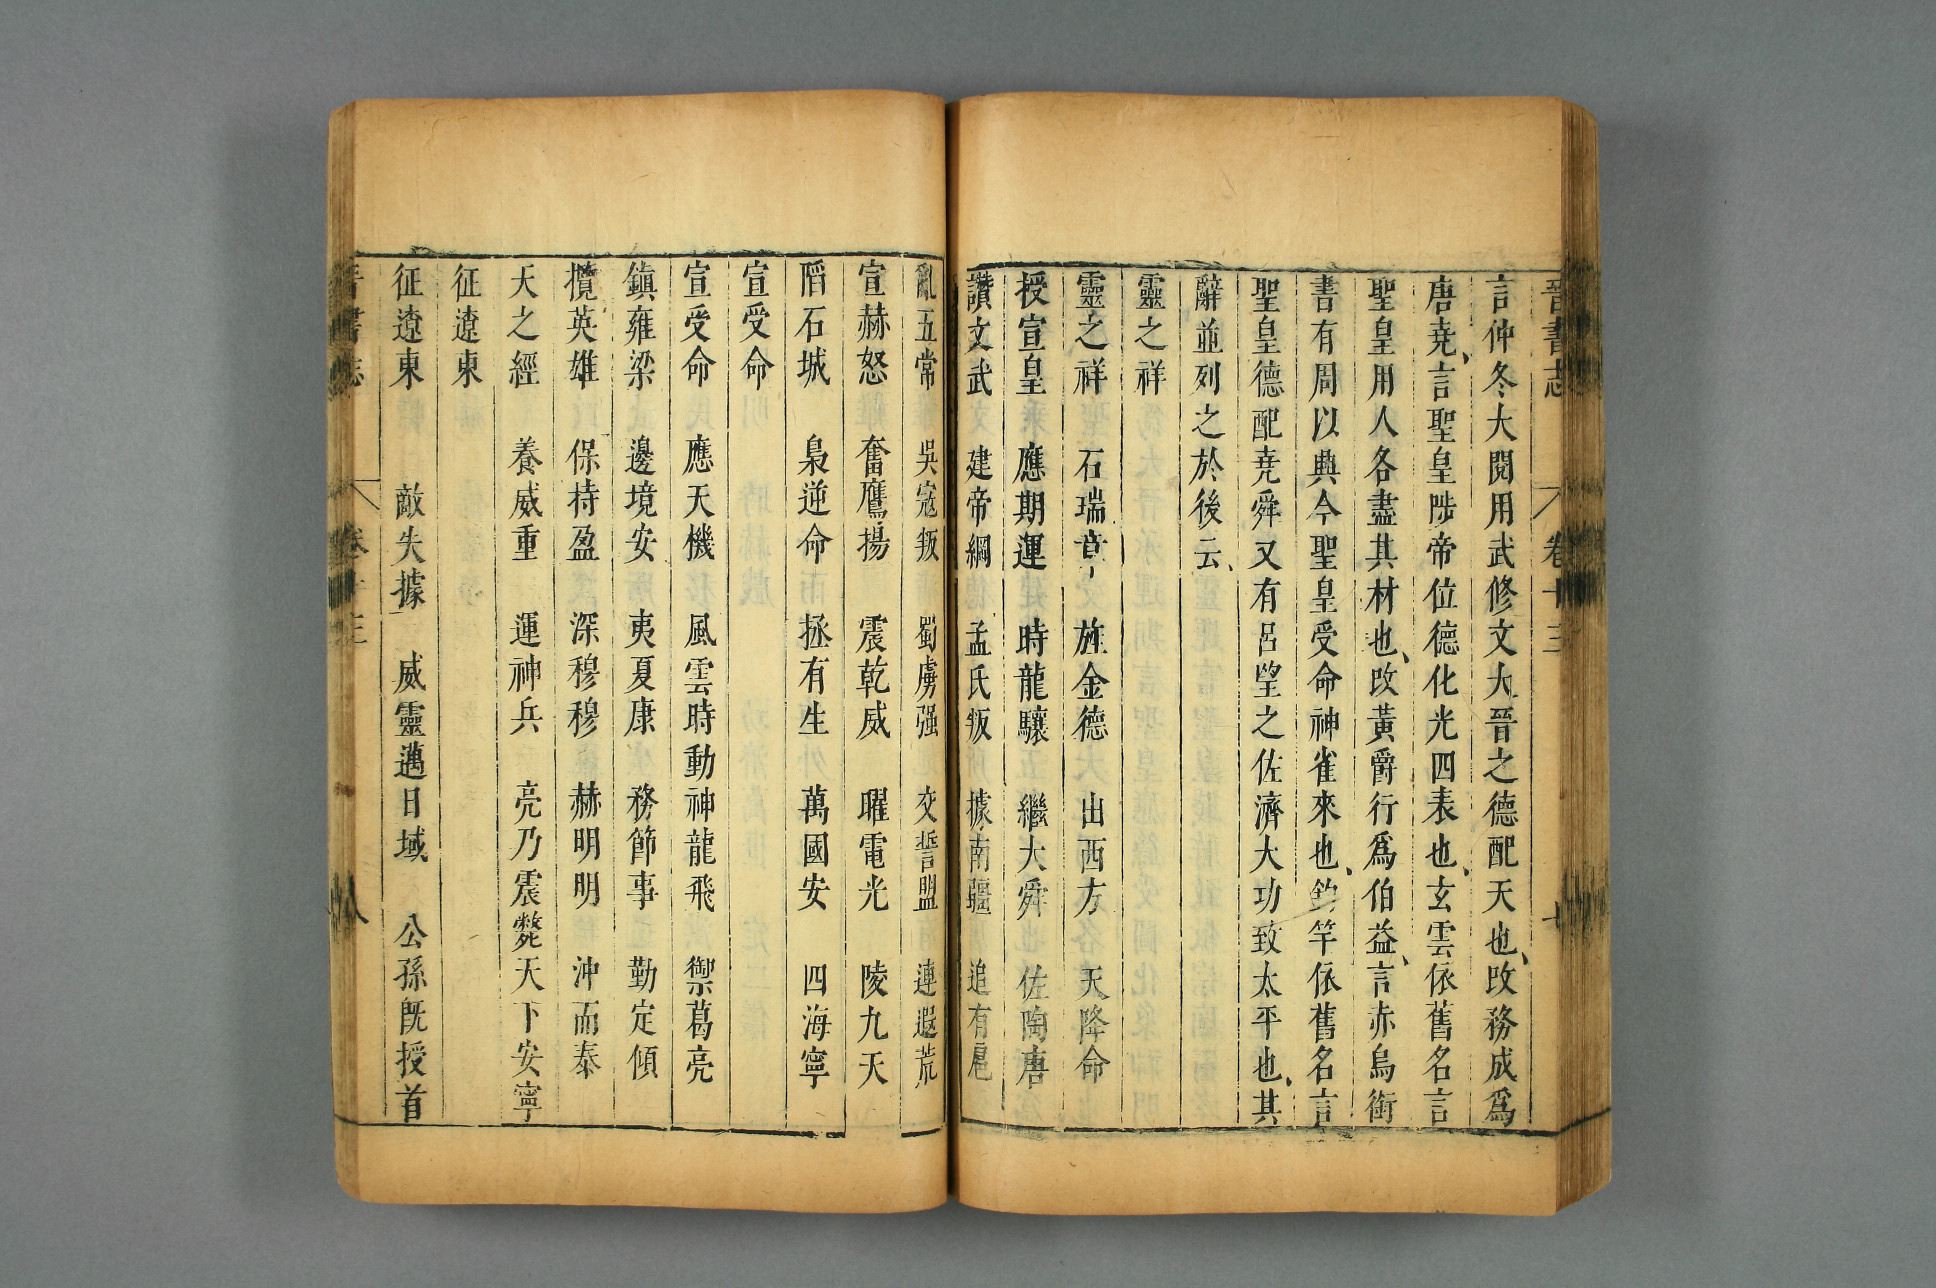 晉書志 卷十三 七
言仲冬大閱用武修文大晉之德配天也攺務成爲
唐堯言聖皇陟帝位德化光四表也玄雲依舊名言
聖皇用人各盡其材也攺黃爵行爲伯益言赤烏銜
書有周以興今聖皇受命神雀來也釣竿依舊名言
聖皇德配堯舜又有呂望之佐濟大功致太平也其
辭並列之於後云
靈之祥
靈之祥 石瑞章 旌金德 出西方 天降命
授宣皇 應期運 時龍驤 繼大舜 佐陶唐
讚文武 建帝綱 孟氏叛 據南疆 追有扈
亂五常 吳寇叛 蜀虜强 交誓盟 連遐荒
宣赫怒 奮鷹揚 震乾威 曜電光 陵九天
陷石城 梟逆命 拯有生 萬國安 四海寧
宣受命
宣受命 應天機 風雲時動神龍飛 禦葛亮
鎮雍梁 邊境安 夷夏康 務節事 勤定傾
攬英雄 保持盈 深穆穆 赫明明 沖而泰
天之經 養威重 運神兵 亮乃震斃天下安寧
征遼東
征遼東 敵失據 威靈邁日域 公孫旣授首
晉書志 卷十三 八